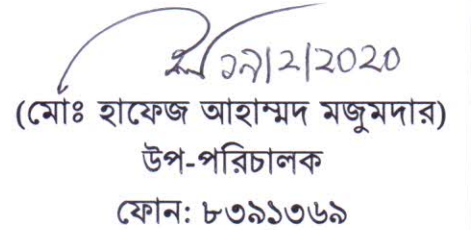 ১৯/2/2020
(মোঃ হাফেজ আহাম্মদ মজুমদার)
উপ-পরিচালক
ফোন: ৮৩৯১৩৬৯